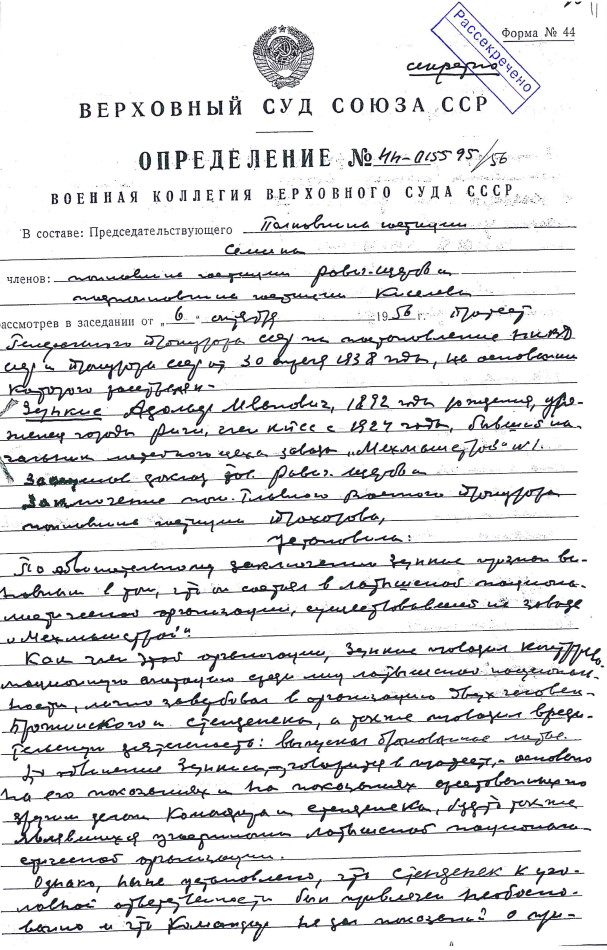 Форма № 44
секретно
Рассекречено
ВЕРХОВНЫЙ СУД СОЮЗА ССР
ОПРЕДЕЛЕНИЕ № 4н-015595/56
ВОЕННАЯ КОЛЛЕГИЯ ВЕРХОВНОГО СУДА СССР
В составе: Председательствующего Полковника юстиции
Семина
членов: полковника юстиции
подполковника юстиции Киселева
рассмотрев в заседании от "6" октября 1956 г. протест
Генерального Прокурора СССР на постановление НКВД
СССР и Прокурора СССР от 30 апреля 1938 года, на основании
которого расстрелян-
Адольф Иванович, 1892 года рождения, уро-
женец города Риги, член КПСС с 1927 года, бывший на-
чальник литейного цеха завода „Мехмашстрой" №1.
Заслушав доклад тов.
Заключение пом. Главного Военного Прокурора
полковника юстиции Прохорова,
установила:
По обвинительному заключению признан ви-
новным в том, что он состоял в латышской национа-
листической организации, существовавшей на заводе
„Мехмашстрой"
Как член этой организации, проводил контррево-
люционную агитацию среди лиц латышской националь-
ности, лично завербовал в организацию двух человек-
и а также проводил вреди-
тельскую деятельность: выпускал бракованное литье.
Это обвинение говорится в протесте, - основано
на его показаниях и на показаниях арестованных по
другим делам и будто также
являвшихся участниками латышской национали-
стической организации.
Однако, ныне установлено, что к уго-
ловной ответственности был привлечен необосно-
ванно и что не дал показаний о при-